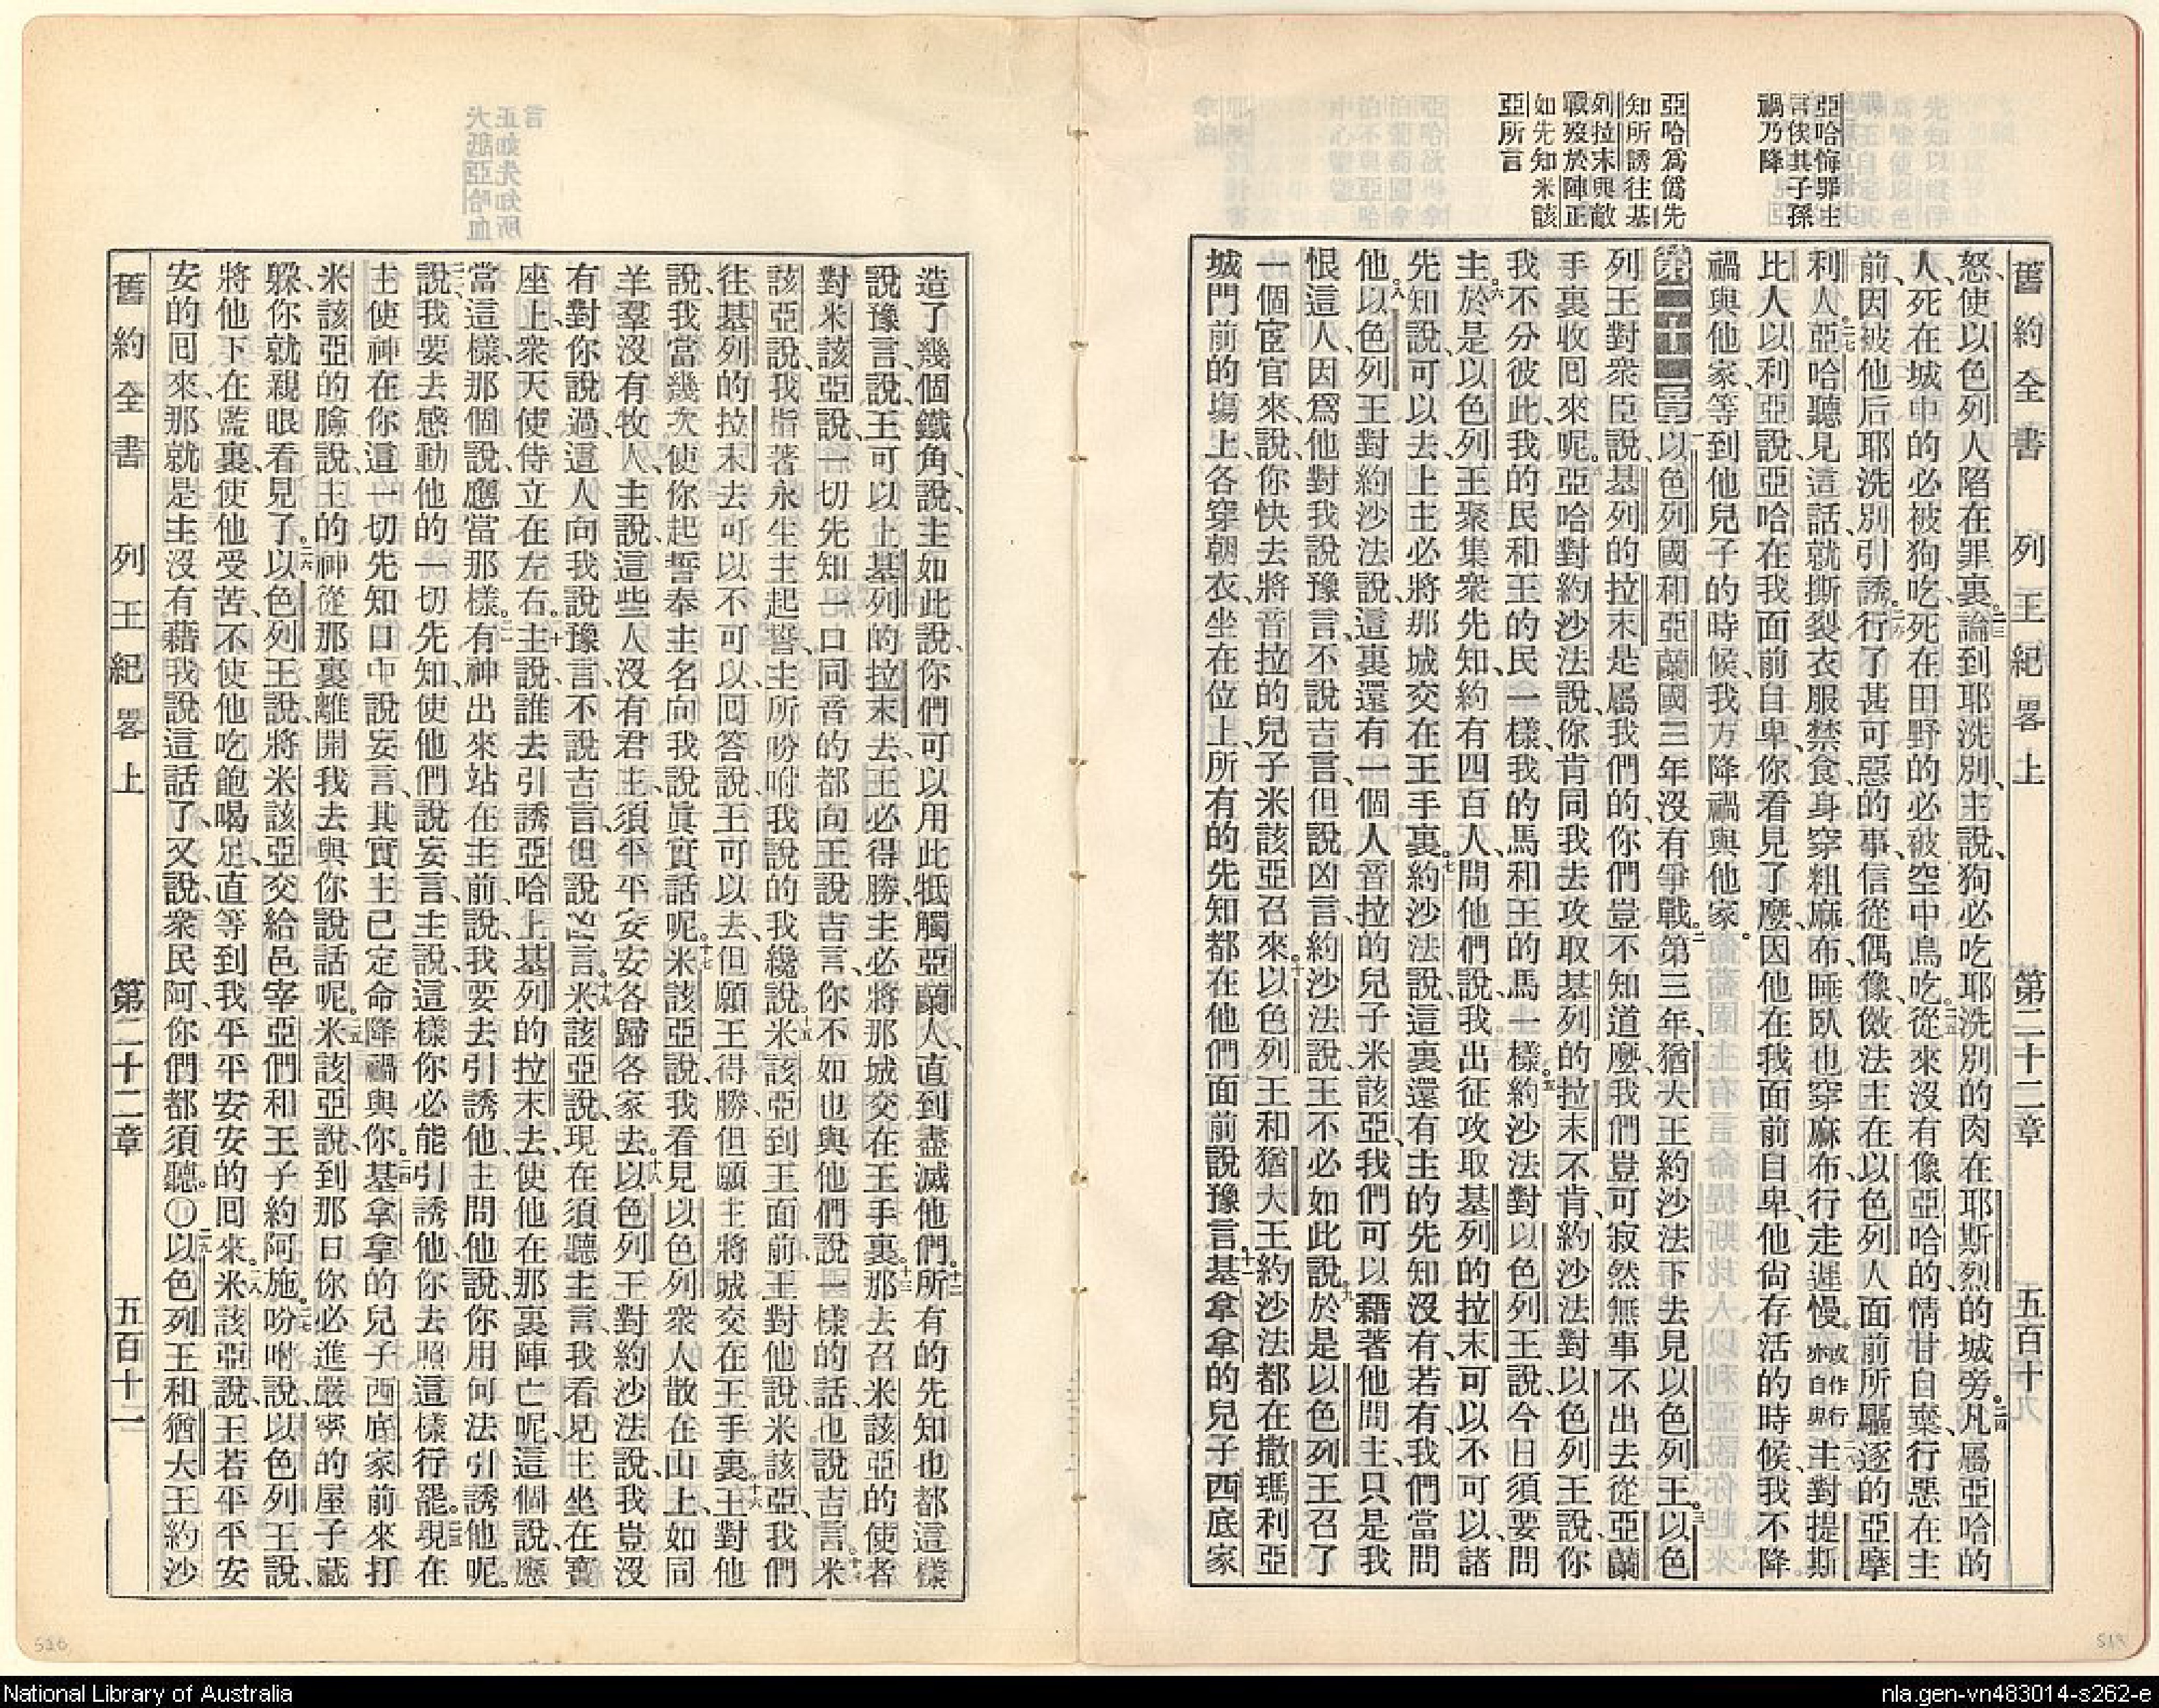 舊約全書　列王紀畧上　第二十二章　五百十九
亞哈悔罪主
言俟其子孫
禍乃降
亞哈爲僞先
知所誘往基
列拉末與敵
戰歿於陣正
如先知米該
亞所言
怒、使以色列人陷在罪裏。二三論到耶洗別、主說、狗必吃耶洗別的肉在耶斯烈的城旁。二四凡屬亞哈的
人、死在城中的必被狗吃、死在田野的必被空中鳥吃。二五從來沒有像亞哈的情甘自棄、行惡在主
前、因被他后耶洗別引誘。二六行了甚可惡的事、信從偶像、傚法主在以色列人面前所驅逐的亞摩
利人。二七亞哈聽見這話、就撕裂衣服、禁食、身穿粗麻布、睡臥也穿麻布、行走遲慢。或作行亦自卑二八主對提斯
比人以利亞說、亞哈在我面前自卑、你看見了麼、因他在我面前自卑、他尙存活的時候、我不降
禍與他家、等到他兒子的時候、我方降禍與他家。
第二十二章 一以色列國和亞蘭國三年沒有爭戰。二第三年、猶大王約沙法下去見以色列王。三以色
列王對衆臣說、基列的拉末是屬我們的、你們豈不知道麼、我們豈可寂然無事、不出去從亞蘭
手裏收囘來呢。四亞哈對約沙法說、你肯同我去攻取基列的拉末不肯、約沙法對以色列王說、你
我不分彼此、我的民和王的民一樣、我的馬和王的馬一樣。五約沙法對以色列王說、今日須要問
主。六於是以色列王聚集衆先知、約有四百人、問他們說、我出征攻取基列的拉末、可以不可以、諸
先知說、可以去上、主必將那城交在王手裏。七約沙法說、這裏還有主的先知沒有、若有、我們當問
他。八以色列王對約沙法說、這裏還有一個人、音拉的兒子米該亞、我們可以藉著他問主、只是我
恨這人、因爲他對我說豫言、不說吉言、但說凶言、約沙法說、王不必如此說。九於是以色列王召了
一個宦官來、說、你快去將音拉的兒子米該亞召來。十以色列王和猶大王約沙法、都在撒瑪利亞
城門前的塲上、各穿朝衣、坐在位上、所有的先知都在他們面前說豫言。十一基拿拿的兒子西底家
造了幾個鐵角、說、主如此說、你們可以用此牴觸亞蘭人、直到盡滅他們。十二所有的先知也都這樣
說豫言、說、王可以上基列的拉末去、王必得勝、主必將那城交在王手裏。十三那去召米該亞的使者
對米該亞說、一切先知一口同音的都向王說吉言、你不如也與他們說一樣的話、也說吉言。十四米
該亞說、我指著永生主起誓、主所吩咐我說的、我纔說。十五米該亞到王面前、王對他說、米該亞、我們
往基列的拉末去可以不可以、囘答說、王可以去、但願王得勝、但願主將城交在王手裏。十六王對他
說、我當幾次使你起誓、奉主名向我說眞實話呢。十七米該亞說、我看見以色列衆人散在山上、如同
羊羣沒有牧人、主說、這些人沒有君主、須平平安安各歸各家去。十八以色列王對約沙法說、我豈沒
有對你說過、這人向我說豫言、不說吉言、但說凶言。十九米該亞說、現在須聽主言、我看見主坐在寶
座上、衆天使侍立在左右。二十主說、誰去引誘亞哈上基列的拉末去、使他在那裏陣亡呢、這個說、應
當這樣、那個說、應當那樣。二一有神出來站在主前、說、我要去引誘他、主問他說、你用何法引誘他呢。
二二說、我要去感動他的一切先知、使他們說妄言、主說、這樣你必能引誘他、你去照這樣行罷。二三現在
主使神在你這一切先知口中說妄言、其實主已定命降禍與你。二四基拿拿的兒子西底家前來打
米該亞的臉、說、主的神從那裏離開我去與你說話呢。二五米該亞說、到那日你必進嚴密的屋子藏
躱、你就親眼看見了。二六以色列王說、將米該亞交給邑宰亞們和王子約阿施。二七吩咐說、以色列王說、
將他下在監裏、使他受苦、不使他吃飽喝足、直等到我平平安安的囘來。二八米該亞說、王若平平安
安的囘來、那就是主沒有藉我說這話了、又說、衆民阿、你們都須聽。〇二九以色列王和猶大王約沙
舊約全書　列王紀畧上　第二十二章
National Library of Australia
nla.gen-vn483014-s262-e